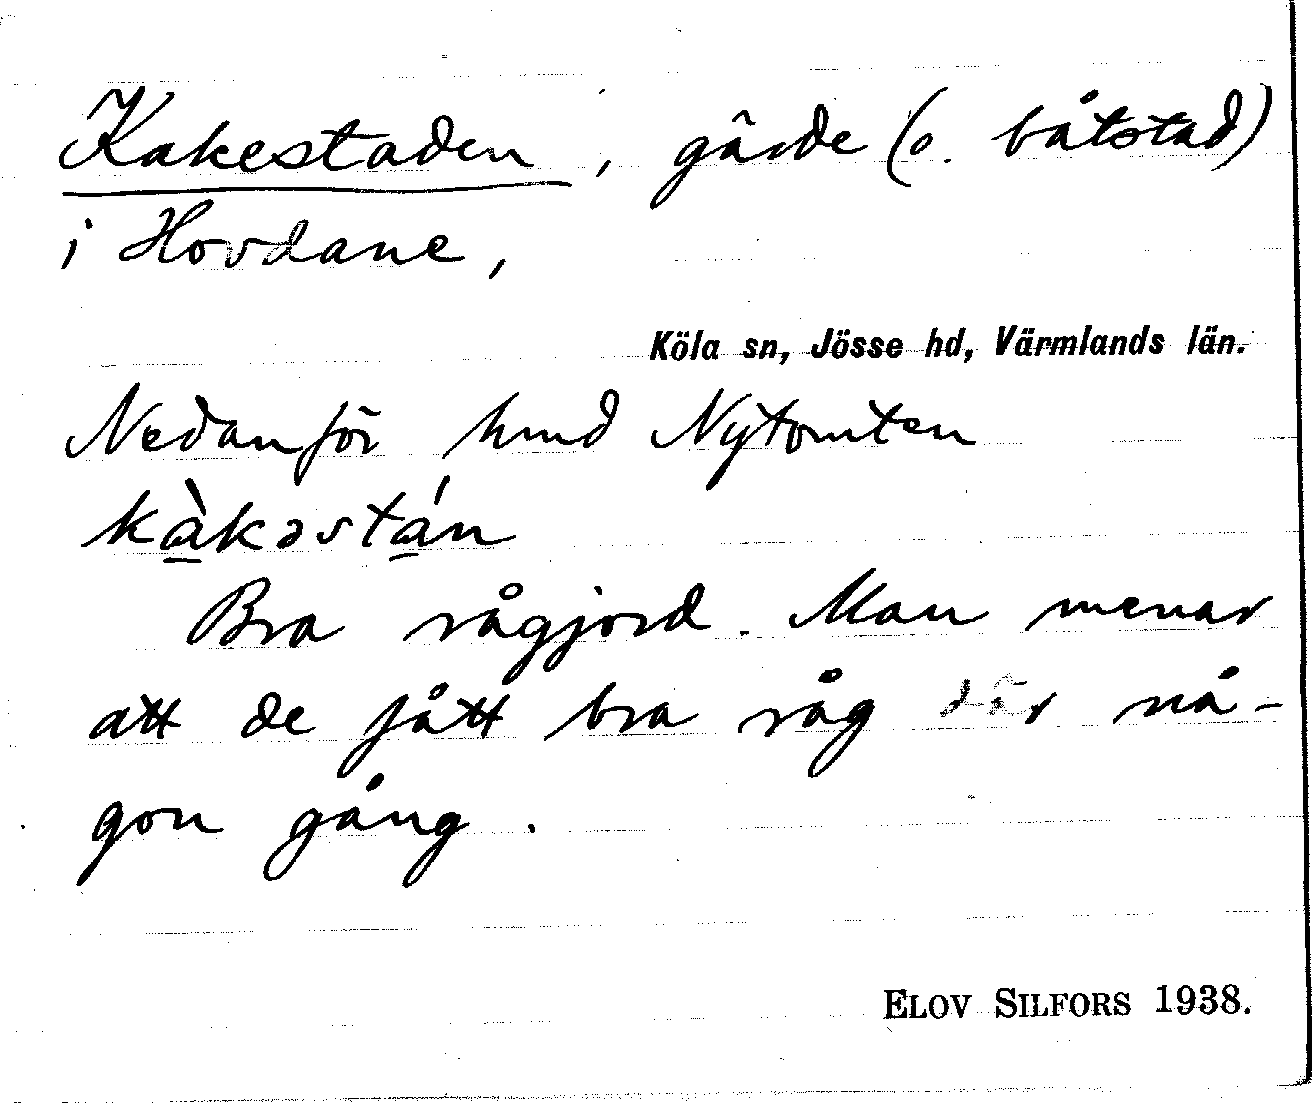 Kakestaden, gärde (o. båtstad)
i Hovdane,
Köla sn, Jösse hd, Värmlands län.
Nedanför Nytomten
kàkəstán
Bra rågjord. Man menar
att de fått bra råg där nå-
gon gång.
ELOV SILFORS 1938.